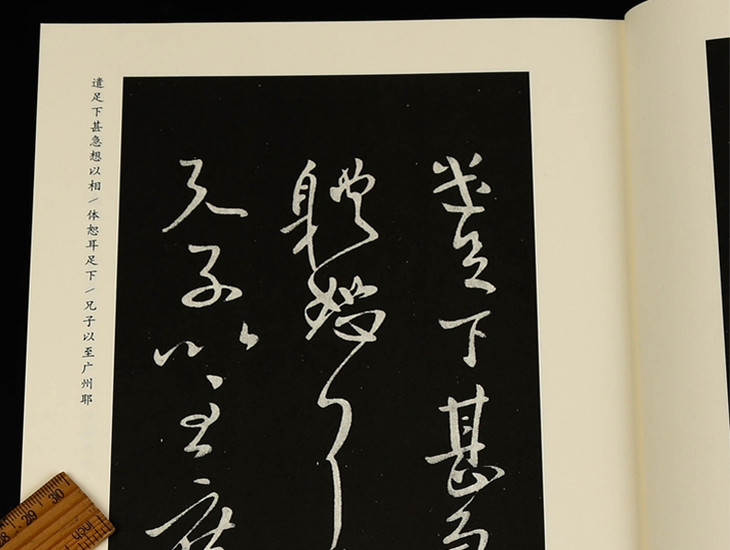 遣足下甚急想以相/体恕耳足下/兄子以至广州耶
遣足下甚急
體恕耳
兄子以至廣
28 29 30
inch